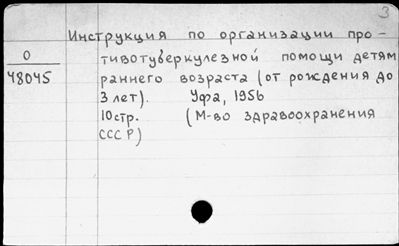 3
Инструкция по организации про-
О
48045
тивотуберкулезной помощи детям
раннего возраста (от рождения до
3 лет). Уфа, 1956
10стр. (М-во здравоохранения
СССР)